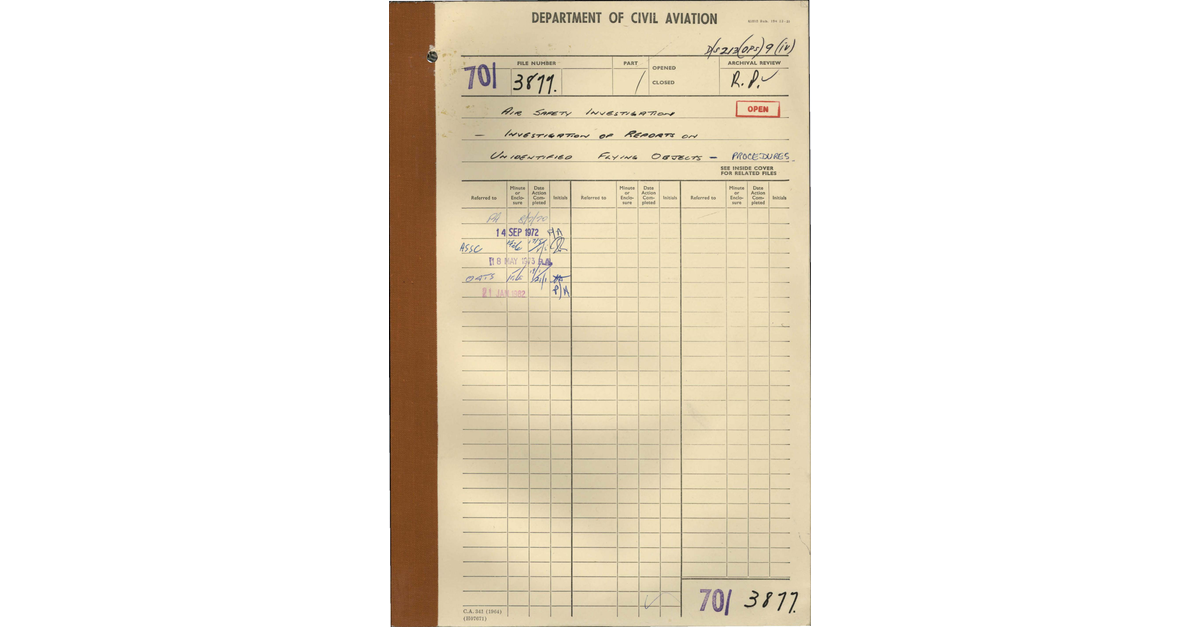 DEPARTMENT OF CIVIL AVIATION
D/S213(OPS)9(iv)
FILE NUMBER PART OPENED ARCHIVAL REVIEW
70/ 3877. 1 CLOSED R.P.
AIR SAFETY INVESTIGATION OPEN
— INVESTIGATION OF REPORTS ON
UNIDENTIFIED FLYING OBJECTS — PROCEDURES
SEE INSIDE COVER
FOR RELATED FILES
Referred to Minute or Enclo- sure Date Action Com- pleted Initials Referred to Minute or Enclo- sure Date Action Com- pleted Initials Referred to Minute or Enclo- sure Date Action Com- pleted Initials
PA
14 SEP 1972
ASSC File
18 MAY 1973
OATS File
21 JAN 1982
70/ 3877.
C.A. 341 (1964)